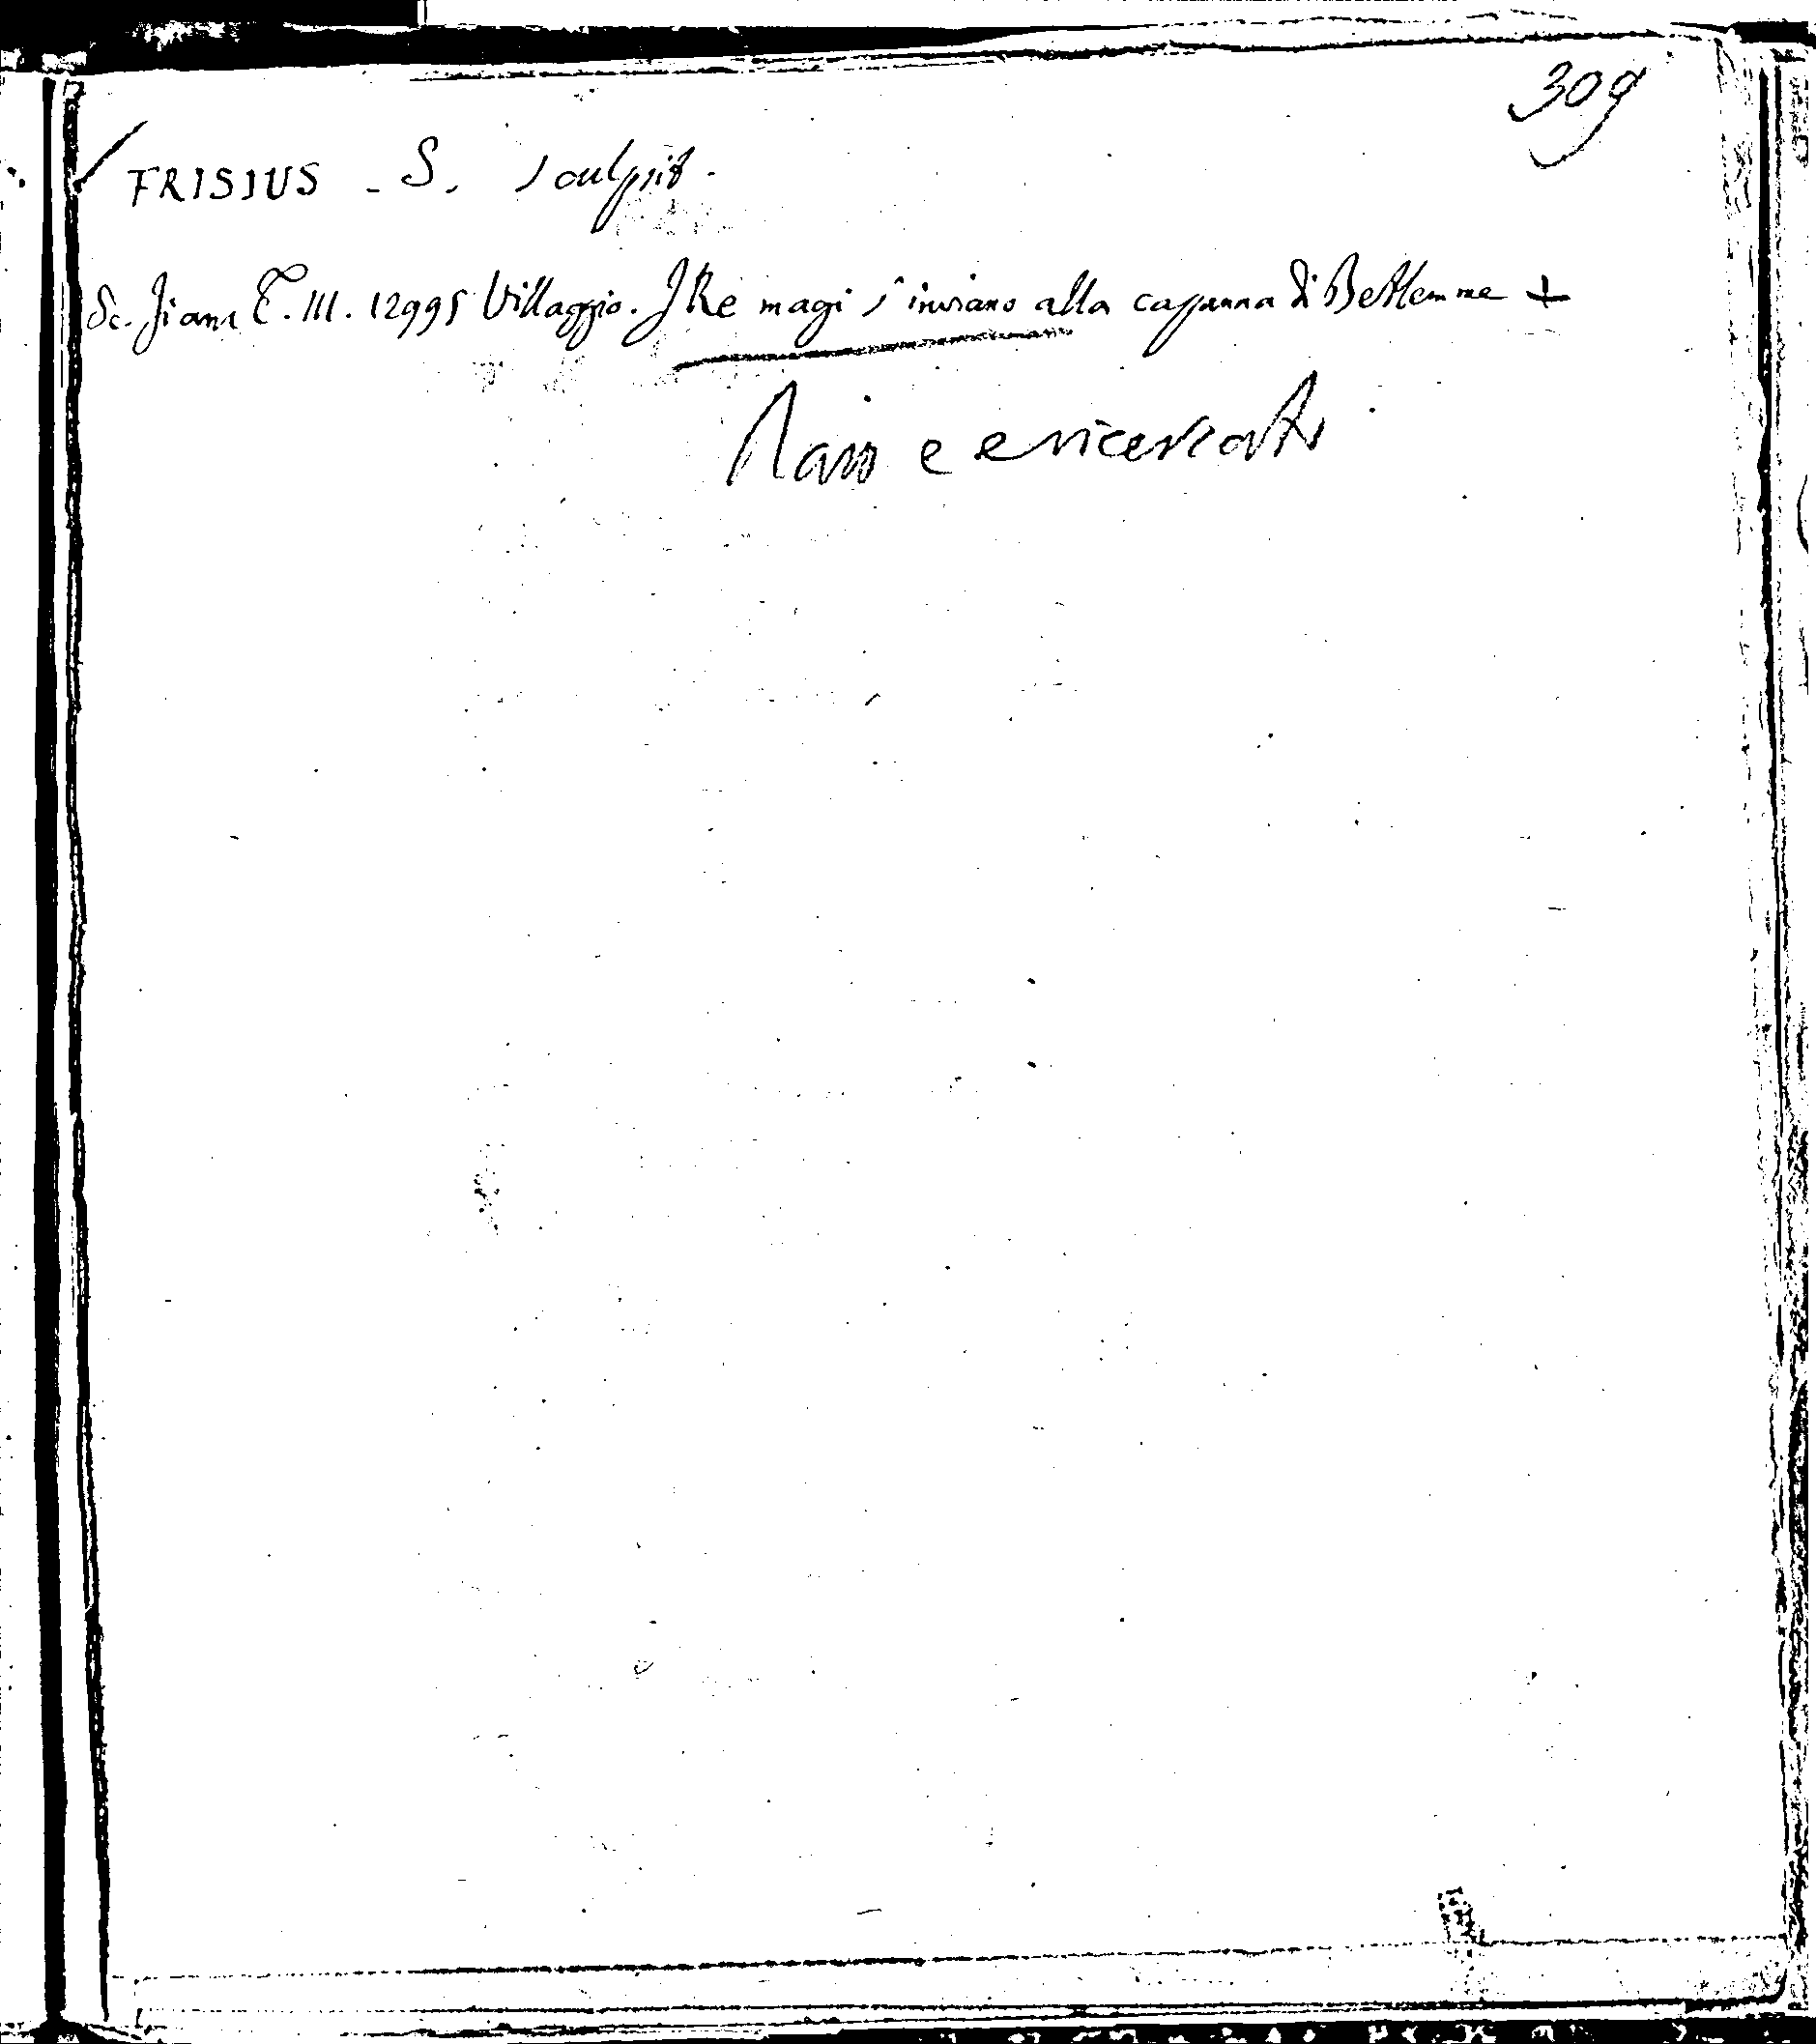 309
FRISIUS - S. sculpsit.
Sc. Fiam T. III. 12995 Villaggio. I Re magi s'inviano alla capanna di Betlemme +
Raro e e ricercato